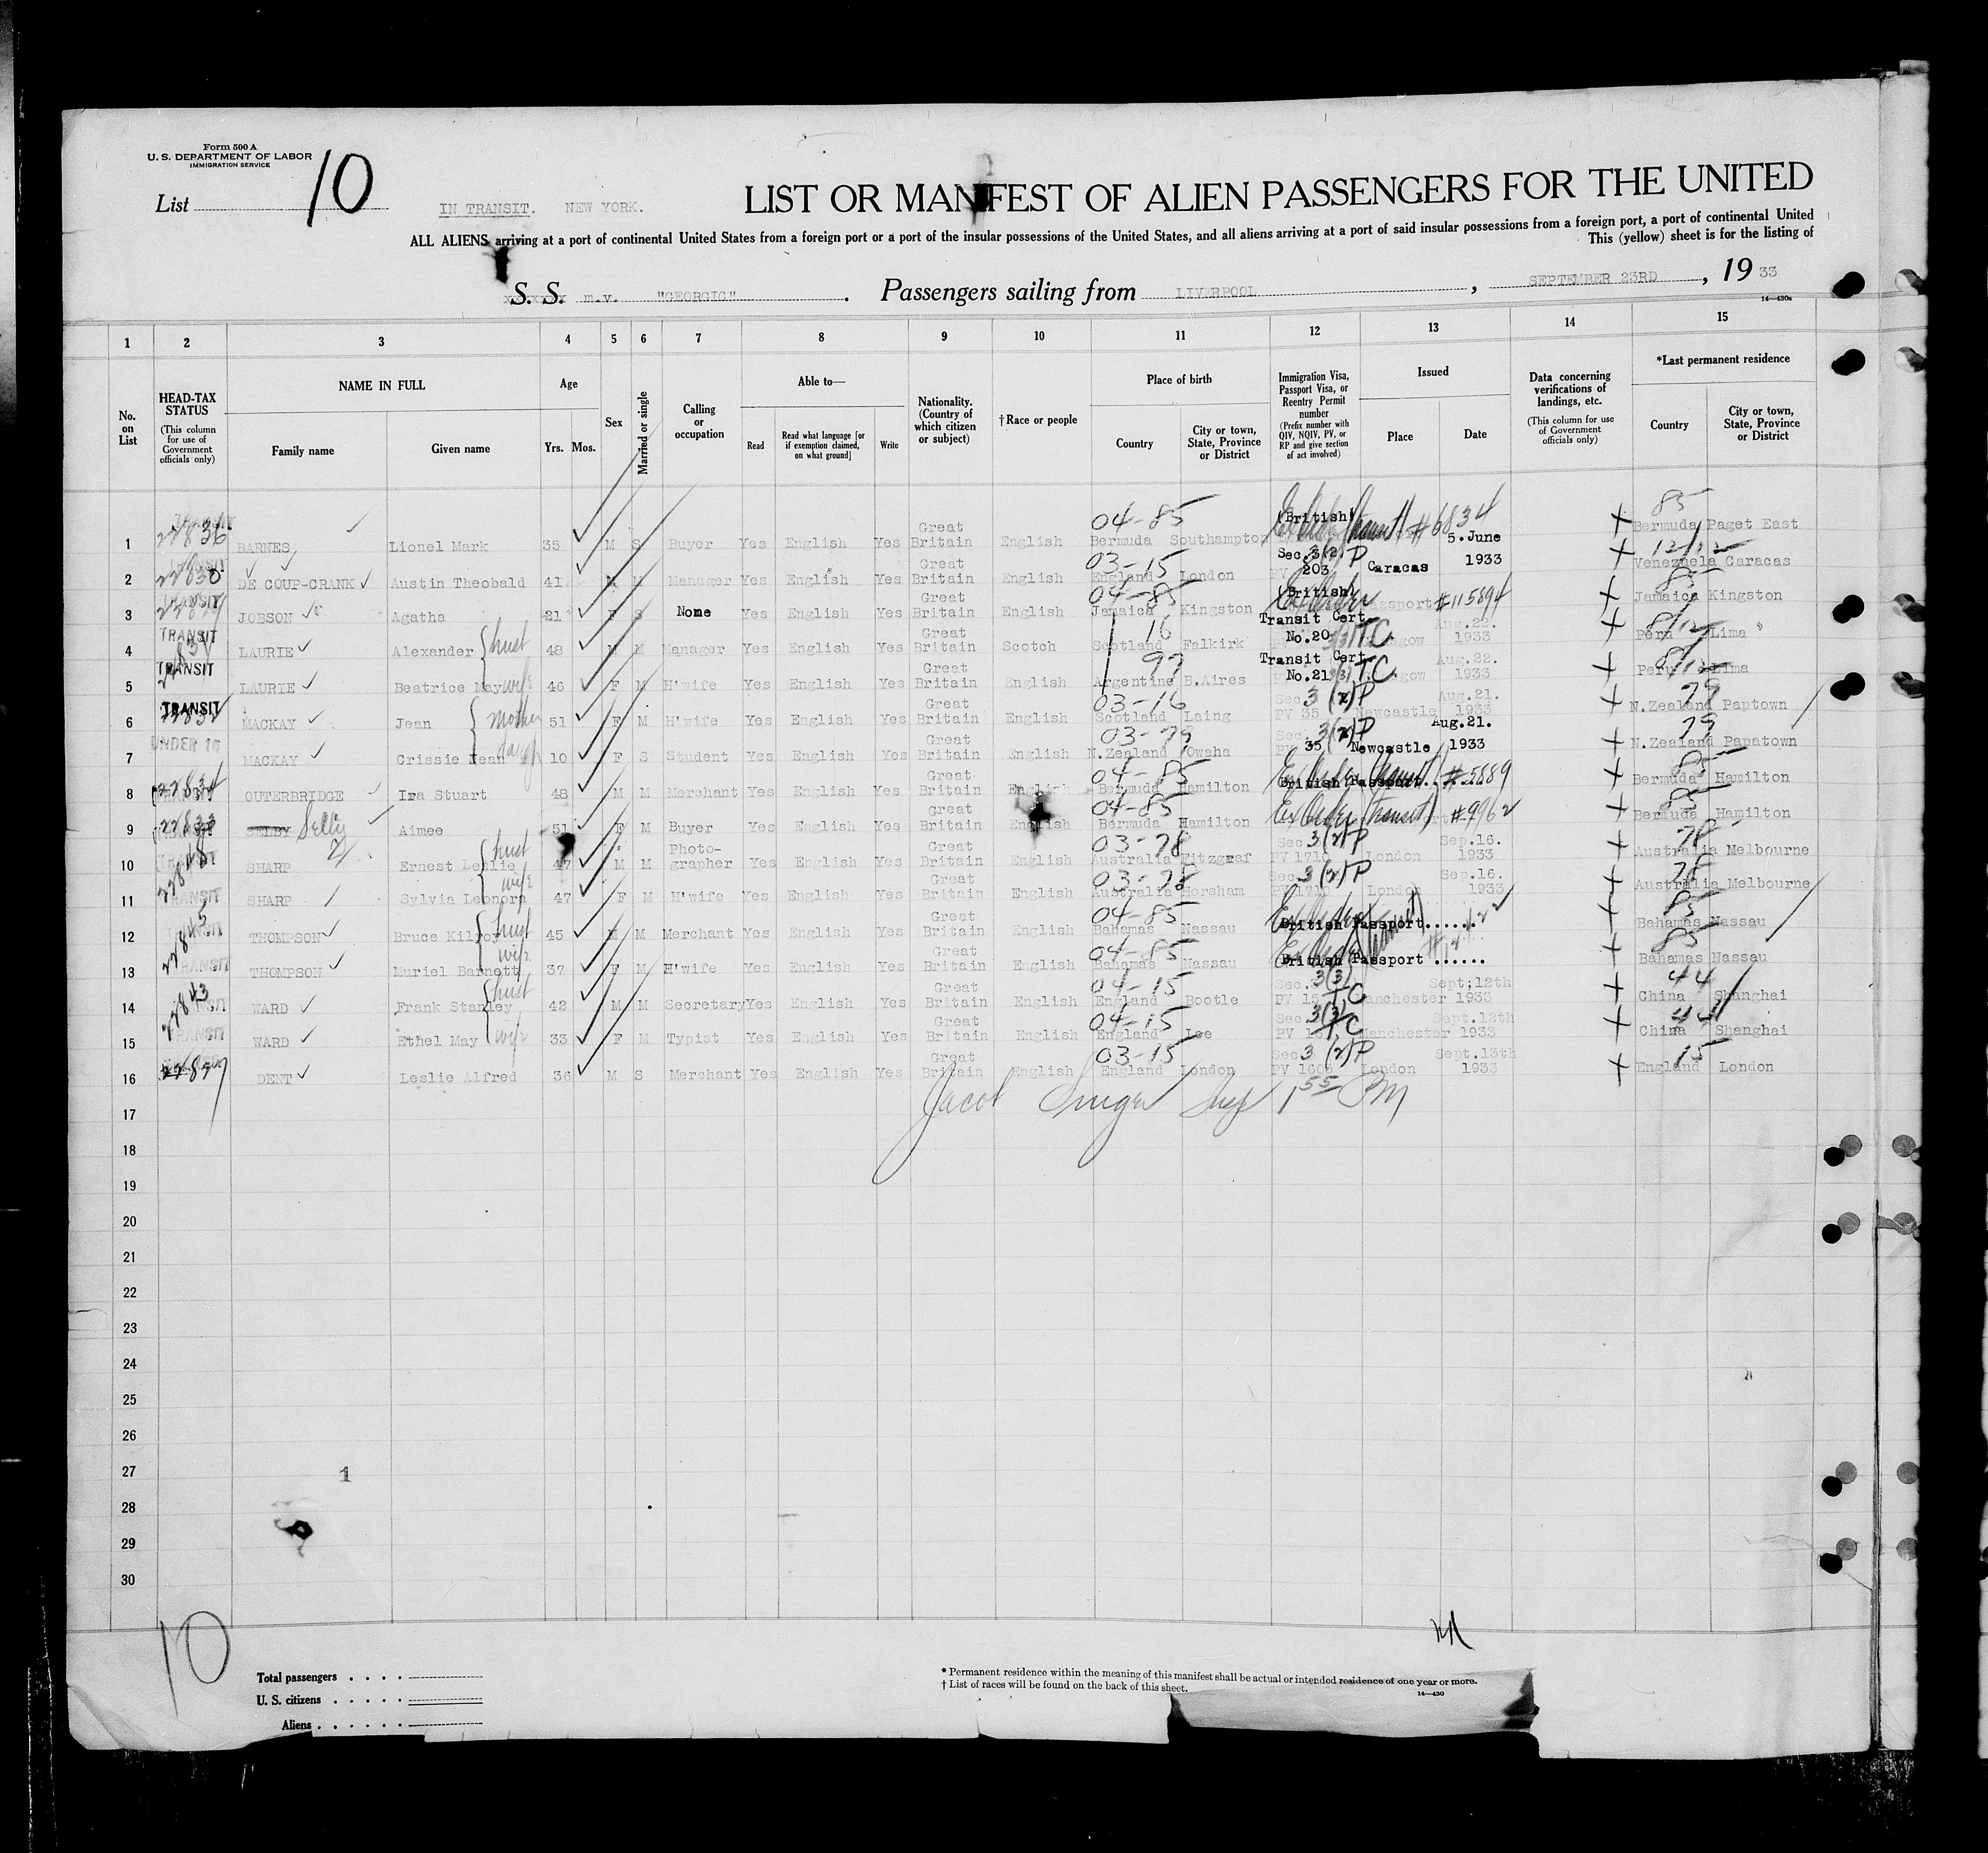 Form 500 A
U. S. DEPARTMENT OF LABOR
IMMIGRATION SERVICE
List 10
IN TRANSIT. NEW YORK.
LIST OR MANIFEST OF ALIEN PASSENGERS FOR THE UNITED
ALL ALIENS arriving at a port of continental United States from a foreign port or a port of the insular possessions of the United States, and all aliens arriving at a port of said insular possessions from a foreign port, a port of continental United
This (yellow) sheet is for the listing of
S. S. m.v. "GEORGIC". Passengers sailing from LIVERPOOL, SEPTEMBER 23RD, 19 33
14—430a
1 2 3 4 5 6 7 8 9 10 11 12 13 14 15
No. on List
HEAD-TAX STATUS (This column for use of Government officials only)
NAME IN FULL
Family name Given name
Age
Yrs. Mos.
Sex
Married or single
Calling or occupation
Able to—
Read Read what language [or if exemption claimed, on what ground] Write
Nationality. (Country of which citizen or subject)
† Race or people
Place of birth
Country City or town, State, Province or District
Immigration Visa, Passport Visa, or Reentry Permit number (Prefix number with QIV, NQIV, PV, or RP and give section of act involved)
Issued
Place Date
Data concerning verifications of landings, etc. (This column for use of Government officials only)
*Last permanent residence
Country City or town, State, Province or District
1 22836 BARNES Lionel Mark 35 M S Buyer Yes English Yes Great Britain English 04-85 Bermuda Southampton (British) #6834 85 Bermuda Paget East
2 DE COUP-CRANK Austin Theobald 41 M M Manager Yes English Yes Great Britain English 03-15 England London Sec. 3(2) P PV 203 Caracas 5. June 1933 Venezuela Caracas
3 JOBSON Agatha 21 F S None Yes English Yes Great Britain English 04-85 Jamaica Kingston (British) Passport #115894 85 Jamaica Kingston
4 TRANSIT LAURIE Alexander husb 48 M M Manager Yes English Yes Great Britain Scotch 16 Scotland Falkirk Transit Cert. No. 20 3(3) T.C. Aug.22. 1933 Peru Lima
5 TRANSIT LAURIE Beatrice May wife 46 F M H'wife Yes English Yes Great Britain English 97 Argentine B.Aires Transit Cert. No. 21 3(3) T.C. Aug.22. 1933 Peru Lima
6 TRANSIT MACKAY Jean mother 51 F M H'wife Yes English Yes Great Britain English 03-16 Scotland Laing Sec 3 (2) P PV 35 Newcastle Aug.21. 1933 79 N.Zealand Paptown
7 UNDER 16 MACKAY Crissie Jean 10 F S Student Yes English Yes Great Britain English 03-79 N.Zealand Owaha Sec. 3(2) P 35 Newcastle Aug.21. 1933 79 N.Zealand Papatown
8 22834 OUTERBRIDGE Ira Stuart 48 M M Merchant Yes English Yes Great Britain English 04-85 Bermuda Hamilton British Passport #5889 85 Bermuda Hamilton
9 22833 SELBY Aimee 51 F M Buyer Yes English Yes Great Britain English 04-85 Bermuda Hamilton Ex Order (transit) #9962 85 Bermuda Hamilton
10 SHARP Ernest Leslie husb 47 M M Photo-grapher Yes English Yes Great Britain English 03-78 Australia Sec 3(2) P PV 1710 London Sep.16. 1933 78 Australia Melbourne
11 SHARP Sylvia Leonora wife 47 F M H'wife Yes English Yes Great Britain English 03-78 Australia Horsham Sec. 3(2) P PV 1710 London Sep.16. 1933 78 Australia Melbourne
12 THOMPSON Bruce Kilroy husb 45 M M Merchant Yes English Yes Great Britain English 04-85 Bahamas Nassau British Passport...... 85 Bahamas Nassau
13 TRANSIT THOMPSON Muriel Barnett wife 37 F M H'wife Yes English Yes Great Britain English 04-85 Bahamas Nassau British Passport ...... 85 Bahamas Nassau
14 22843 WARD Frank Stanley husb 42 M M Secretary Yes English Yes Great Britain English 04-15 England Bootle Sec. 3(3) T.C Manchester Sept;12th 1933 44 China Shanghai
15 TRANSIT WARD Ethel May wife 33 F M Typist Yes English Yes Great Britain English 04-15 England Lee Sec 3(3) T.C Manchester Sept.12th 1933 44 China Shanghai
16 DENT Leslie Alfred 36 M S Merchant Yes English Yes Great Britain English 03-15 England London Sec 3 (2) P London Sept.13th 1933 15 England London
17 Jacob 1 55 PM
18
19
20
21
22
23
24
25
26
27 1
28
29
30
10
Total passengers
U. S. citizens
Aliens
* Permanent residence within the meaning of this manifest shall be actual or intended residence of one year or more.
† List of races will be found on the back of this sheet.
14—430